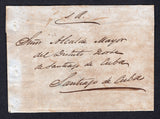 S. A.
Señor Alcalde Mayor
del Distrito Norte
a Santiago de Cuba
Santiago de Cuba